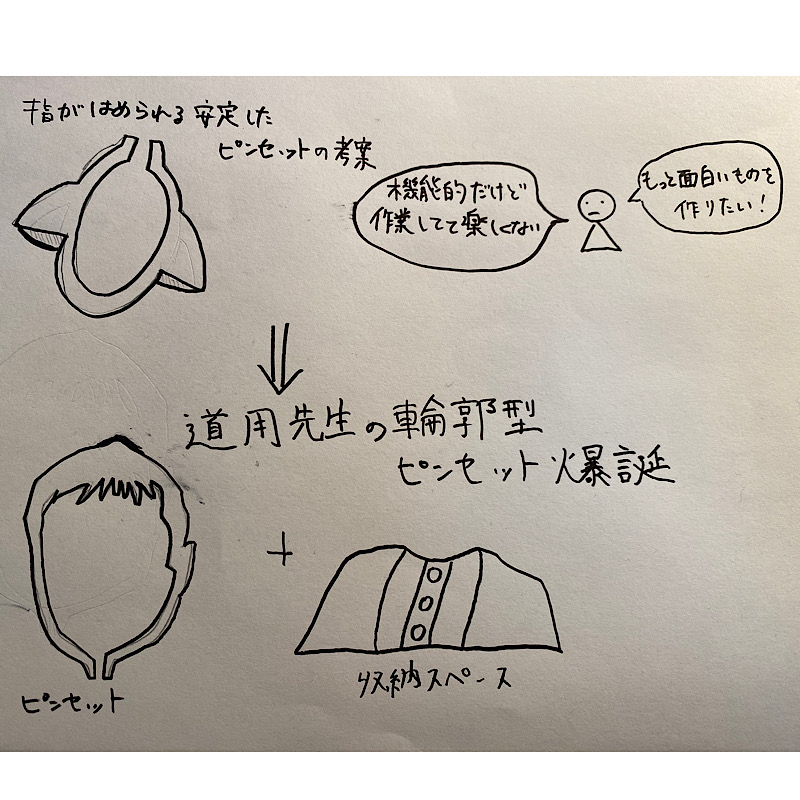 指がはめられる安定した
ピンセットの考案
機能的だけど
作業してて楽しくない
もっと面白いものを
作りたい!
道用先生の輪郭型
ピンセット爆誕
+
ピンセット
収納スペース